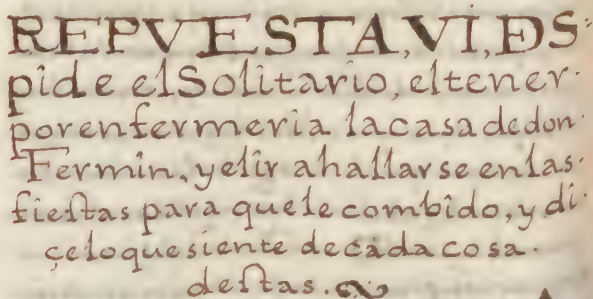 REPVESTA, VI, DS·
pide el Solitario, el tener·
por enfermeria la casa de don·
Fermin, y el ir a hallarse en las·
fiestas para que le combîdo, y di·
çe lo que siente de cada cosa·
destas.